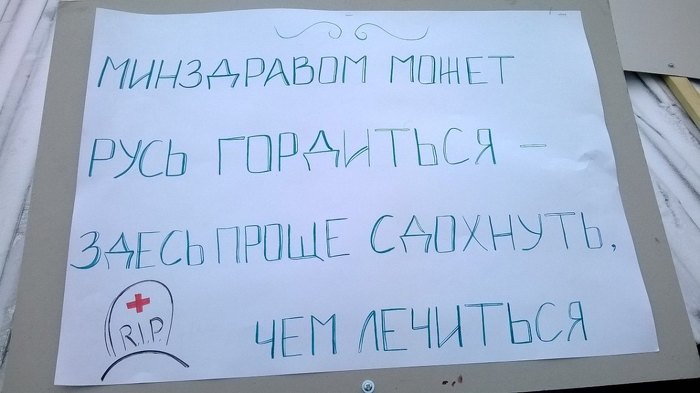 МИНЗДРАВОМ МОЖЕТ
РУСЬ ГОРДИТЬСЯ –
ЗДЕСЬ ПРОЩЕ СДОХНУТЬ,
R.I.P.
ЧЕМ ЛЕЧИТЬСЯ